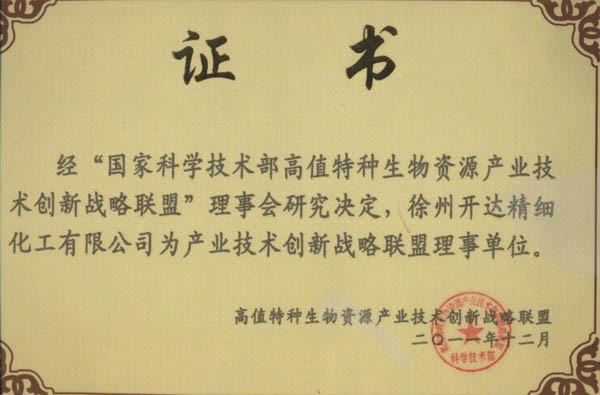 证 书
经“国家科学技术部高值特种生物资源产业技
术创新战略联盟”理事会研究决定，徐州开达精细
化工有限公司为产业技术创新战略联盟理事单位。
高值特种生物资源产业技术创新战略联盟
二〇一一年十二月
科学技术部